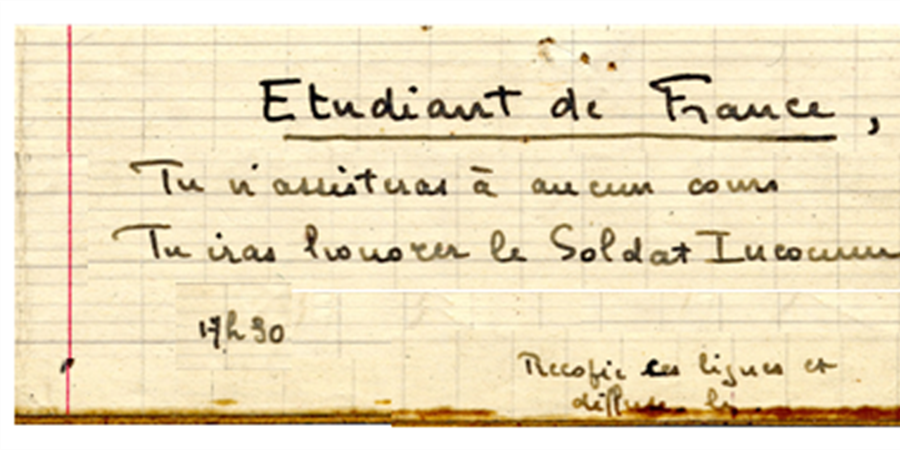 Etudiant de France,
Tu n'assisteras à aucun cours
Tu iras honorer le Soldat Inconnu
17h30
Recopie ces lignes et
diffuse-les.